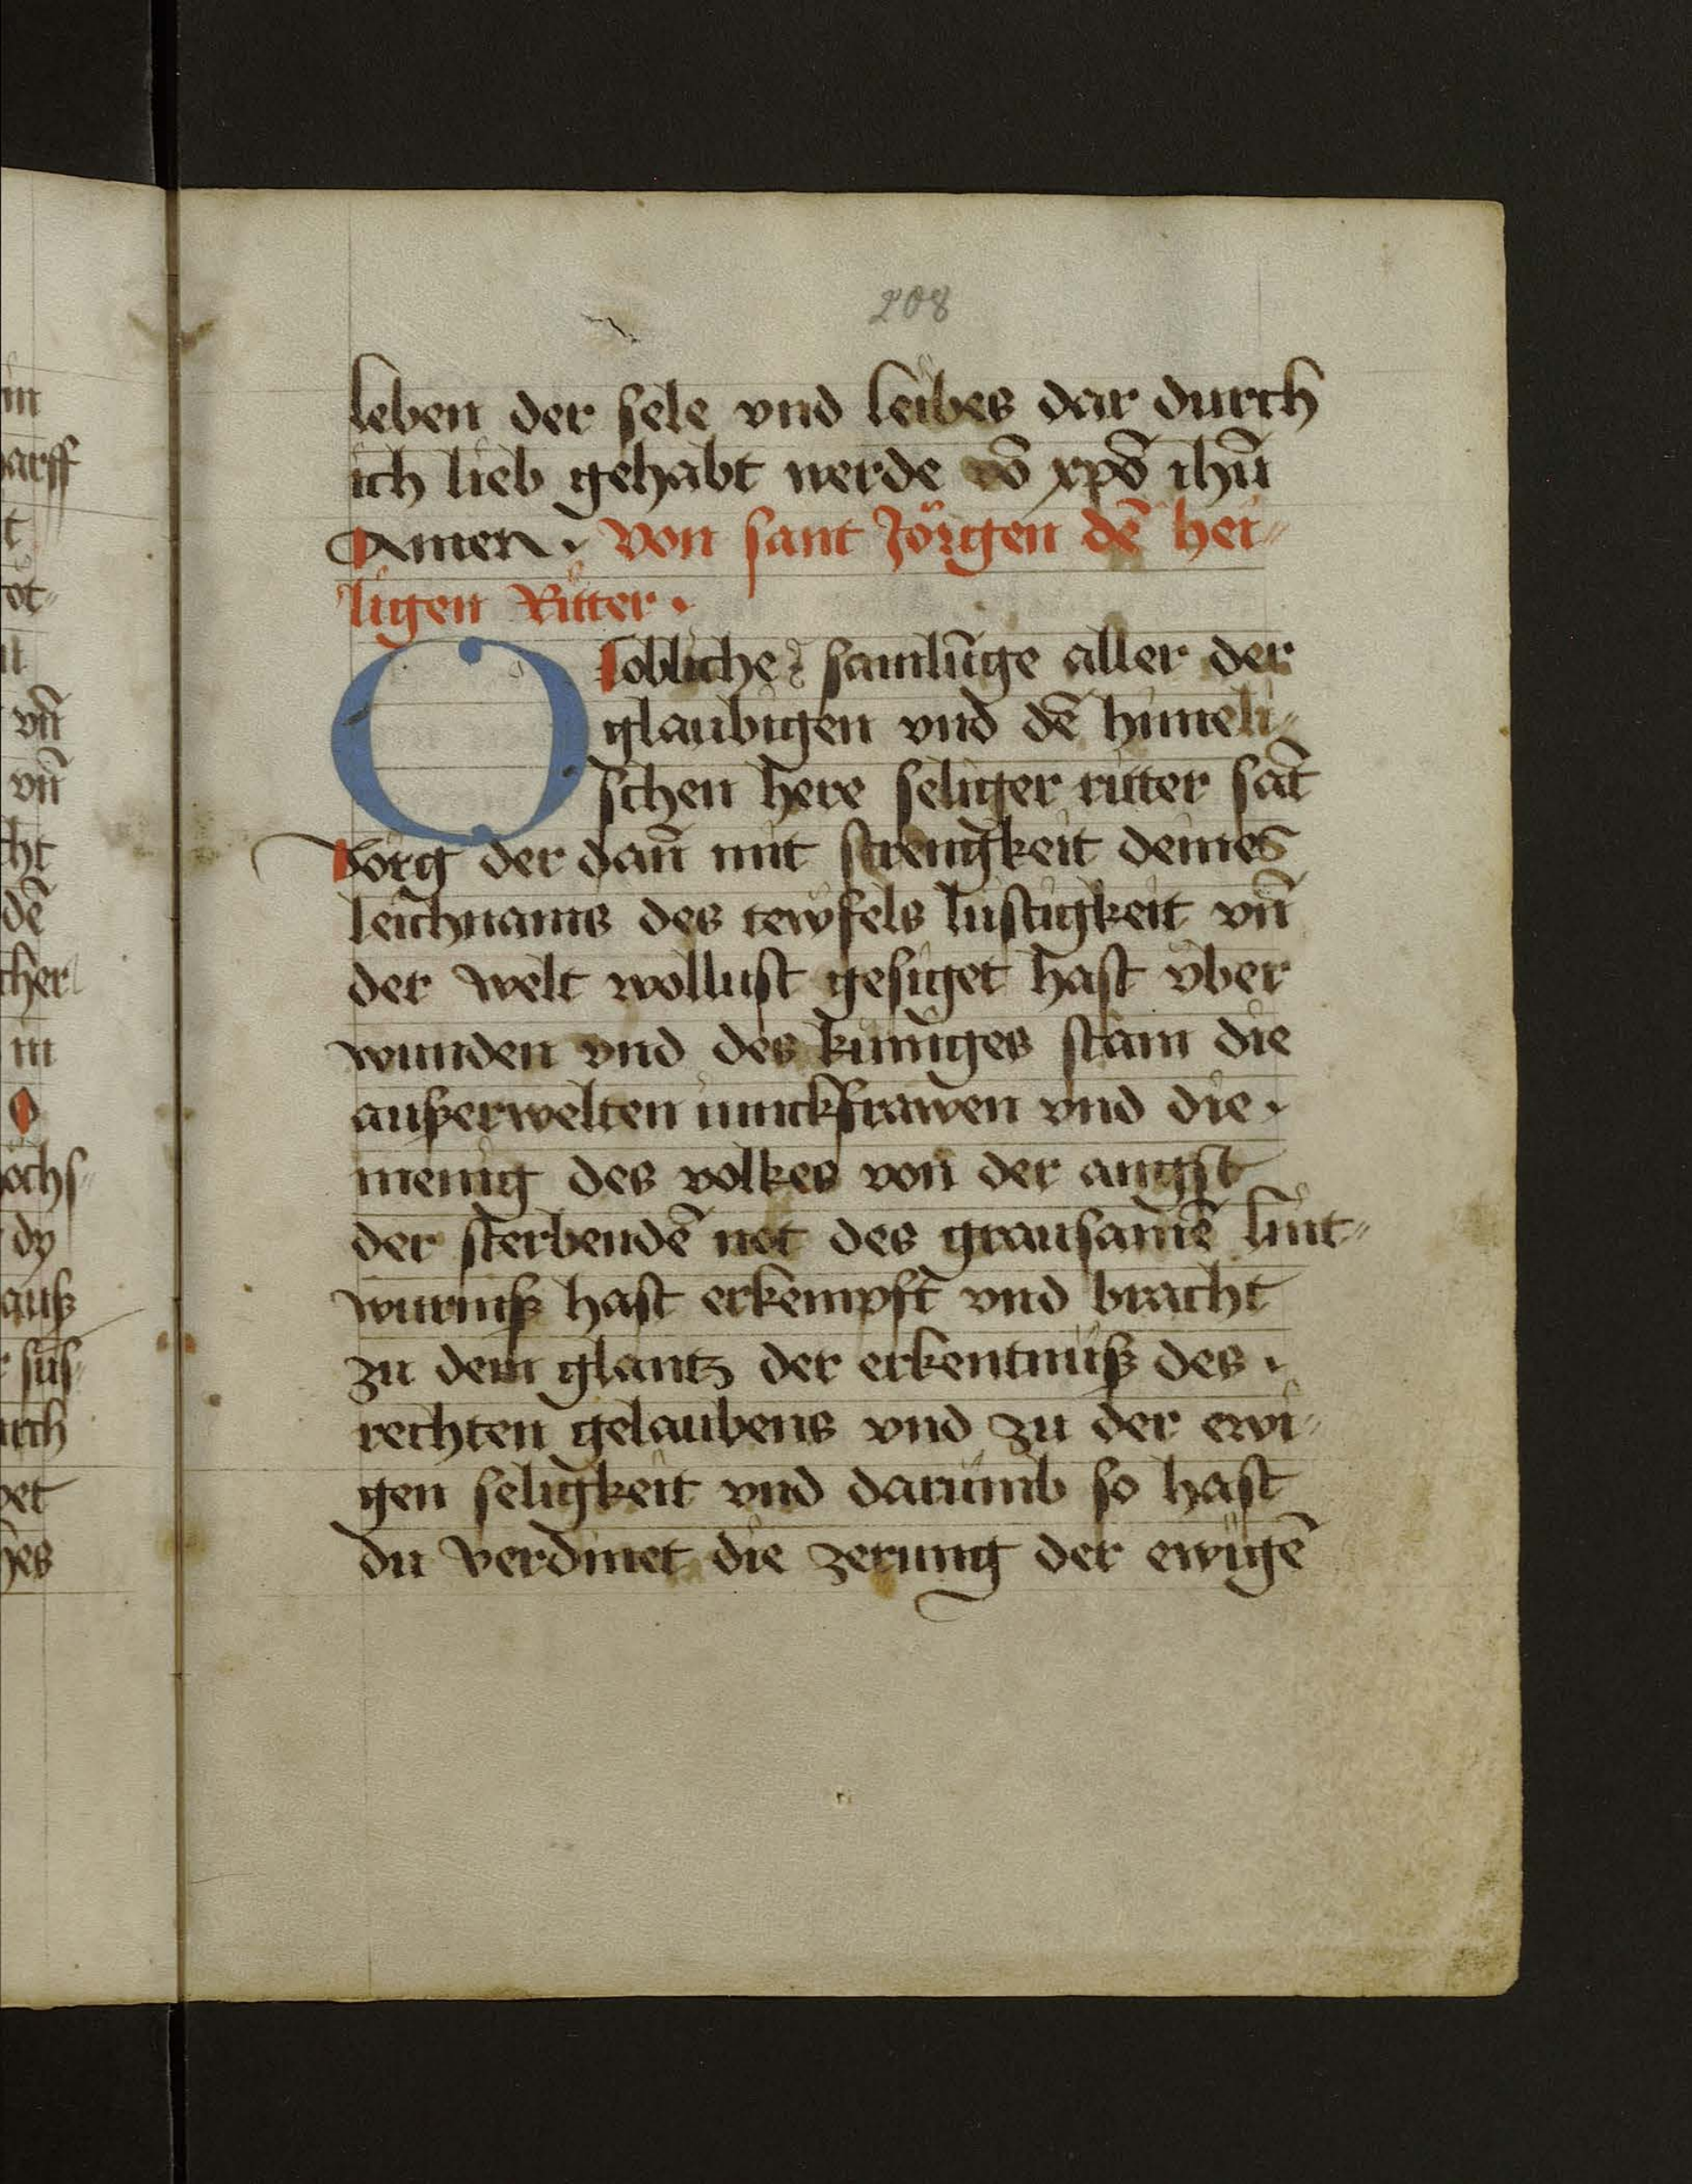 208
leben der sele vnd leibes dar durch
ich lieb gehabt werde vō xpō ihū
Amen · Von sant Jörgen dē hei⸗
ligen Ritter ·
O lobliche samlūge aller der
glaubigen vnd dē himeli⸗
schen here seliger ritter sāt
Jorg der dañ mit strengkeit deines
leichnams des tewfels lustigkeit vñ
der welt wollust gesiget hast vber
wunden vnd des kuniges stam die
außerwelten iunckfrawen vnd die ·
menig des volkes von der angst
der sterbendē not des grausamē lint⸗
wurmß hast erkempft vnd bracht
zu dem glantz der erkentnuß des ·
rechten gelaubens vnd zu der ewi⸗
gen seligkeit vnd darumb so hast
du verdinet die zerung der ewigē
in
arff
t
ot⸗
vñ
vñ
ht
dē
cher
in
ochs⸗
dy
auß
sus⸗
urch
et
hes